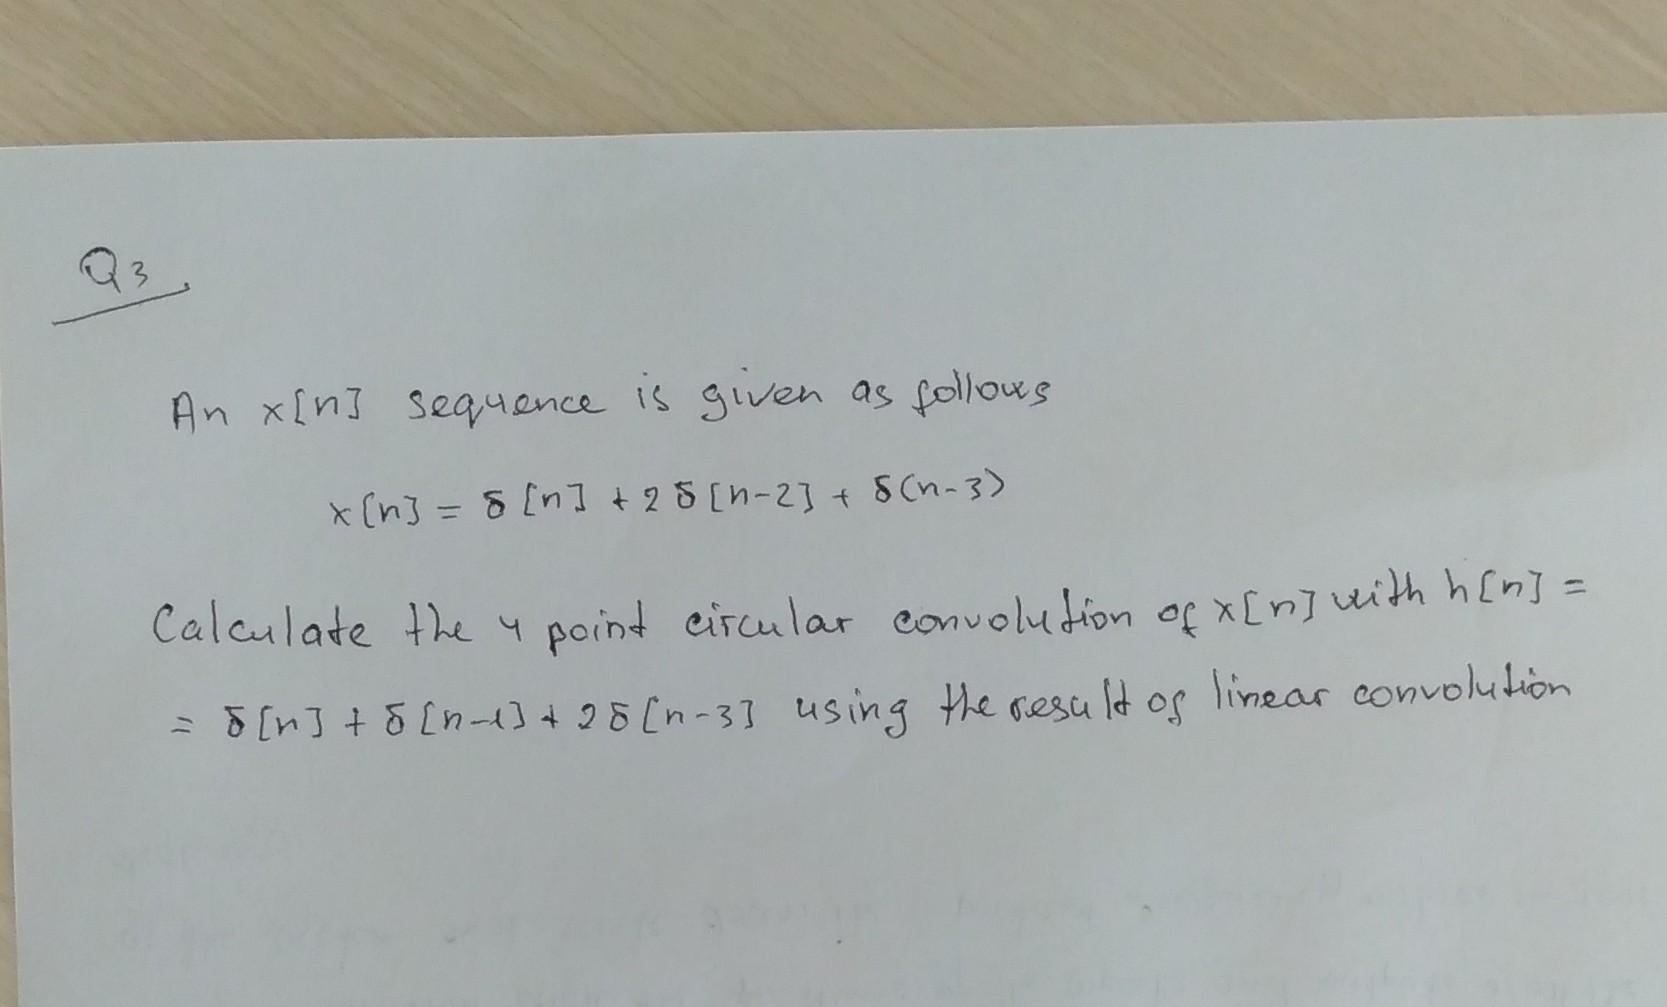 Q3.
An x[n] sequence is given as follows
x[n] = δ[n] + 2δ[n-2] + δ(n-3)
Calculate the 4 point circular convolution of x[n] with h[n] =
= δ[n] + δ[n-1] + 2δ[n-3] using the result of linear convolution